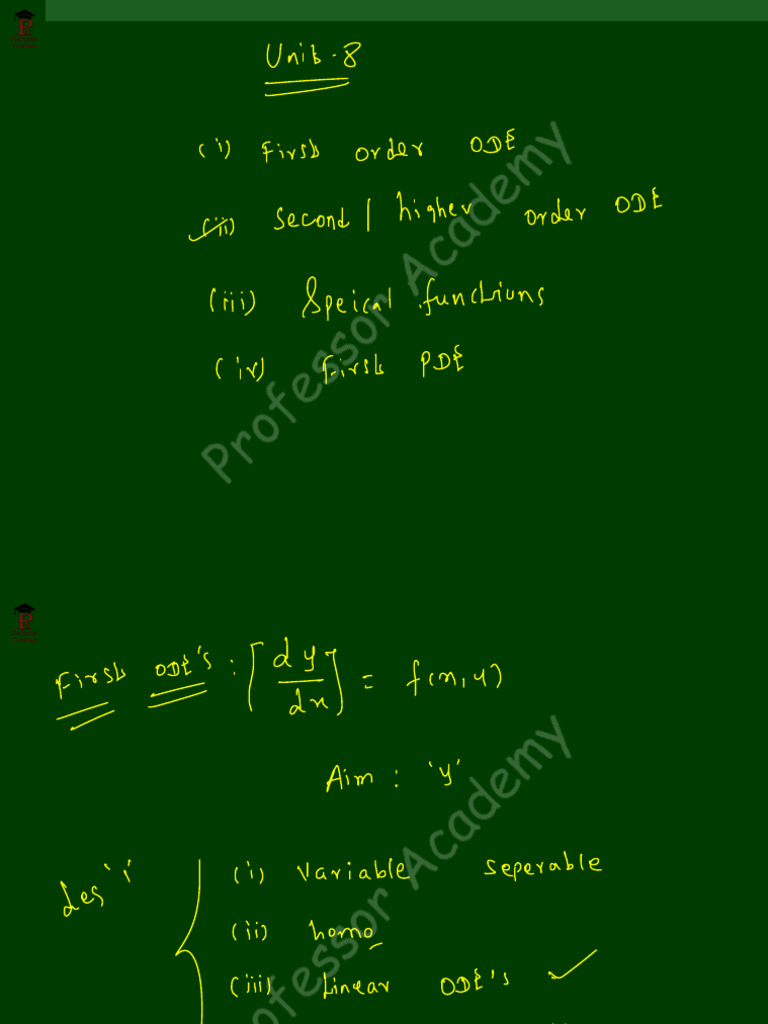 Unit-8
(i) First order ODE
(ii) Second / higher order ODE
(iii) Speical functions
(iv) First PDE
Professor Academy
First ODE's : [dy/dx] = f(x,y)
Aim : 'y'
(i) Variable seperable
(ii) homo
(iii) Linear ODE's
Professor Academy